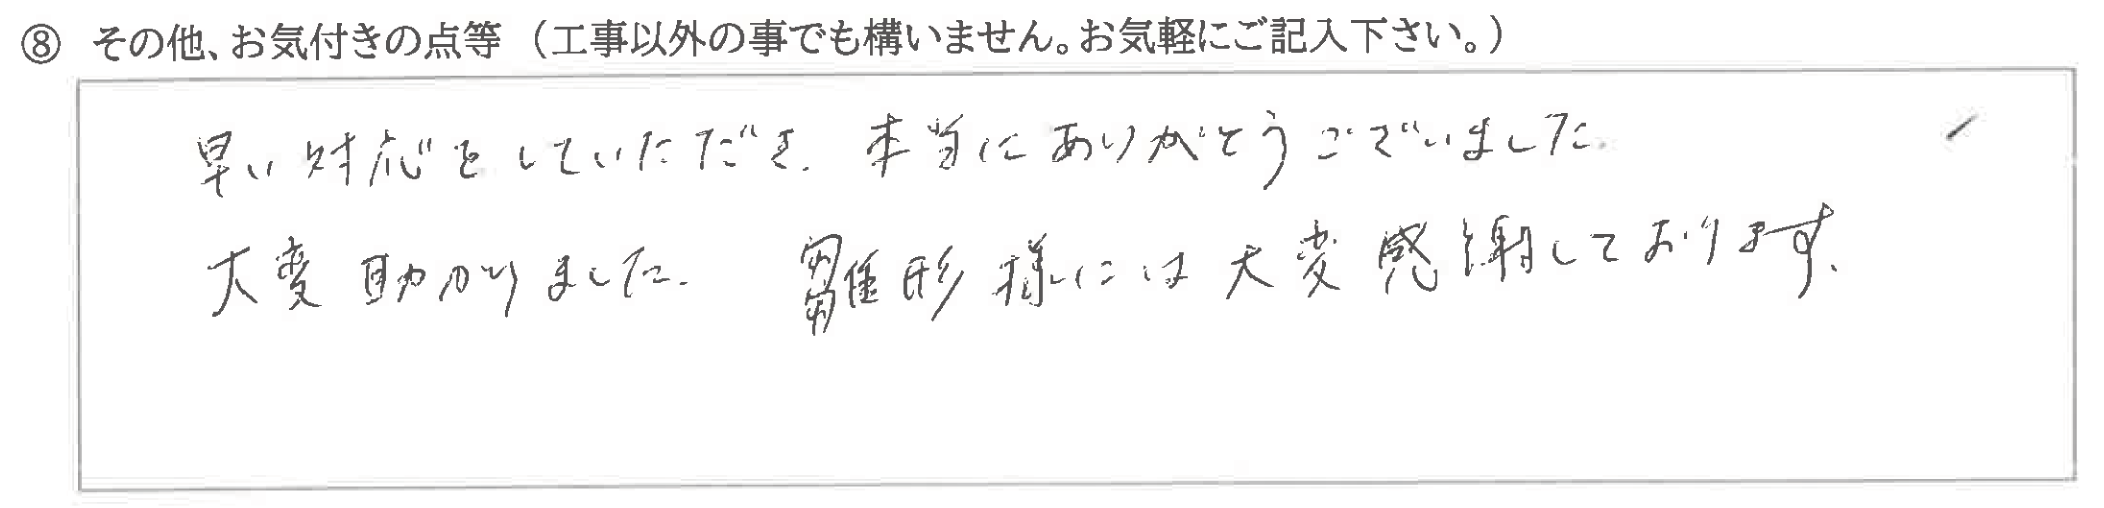 ⑧ その他、お気付きの点等（工事以外の事でも構いません。お気軽にご記入下さい。）
早い対応をしていただき、本当にありがとうございました。
大変助かりました。雛形様には大変感謝しております。